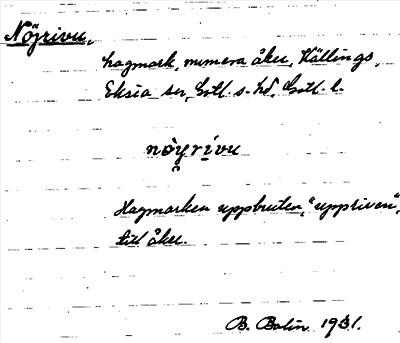 Nöjrivu,
hagmark, numera åker, Hällings,
Eksta sn, Gotl. s. hd, Gotl. l.
nöyrivu
Hagmarken uppbruten, "uppriven",
till åker.
B. Bolin 1931.